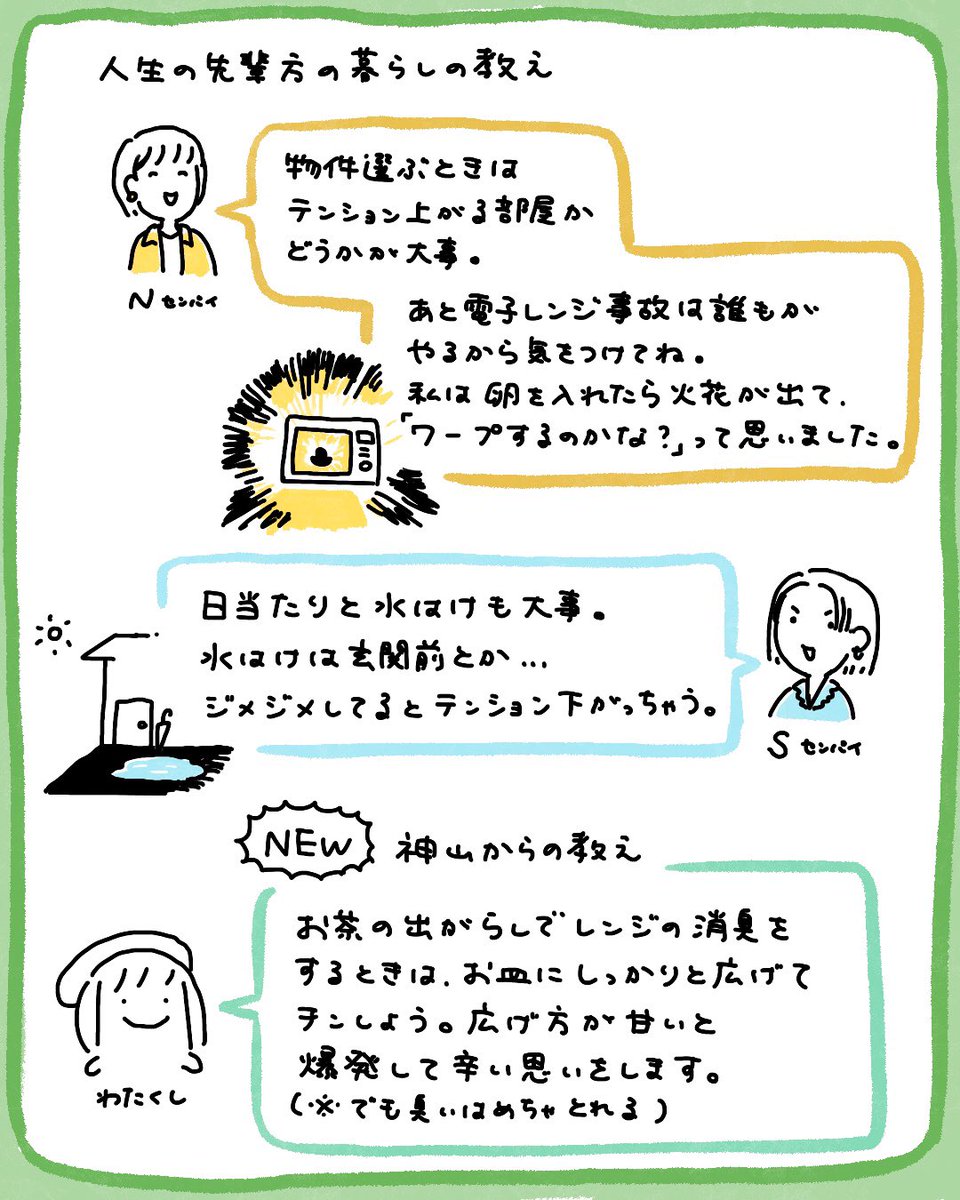 人生の先輩方の暮らしの教え
物件選ぶときは
テンション上がる部屋か
どうかが大事。
Nセンパイ
あと電子レンジ事故は誰もが
やるから気をつけてね。
私は卵を入れたら火花が出て、
「ワープするのかな?」って思いました。
日当たりと水はけも大事。
水はけは玄関前とか...
ジメジメしてるとテンション下がっちゃう。
Sセンパイ
NEW 神山からの教え
お茶の出がらしでレンジの消臭を
するときは、お皿にしっかりと広げて
チンしよう。広げ方が甘いと
爆発して辛い思いをします。
(※でも臭いはめちゃとれる)
わたくし